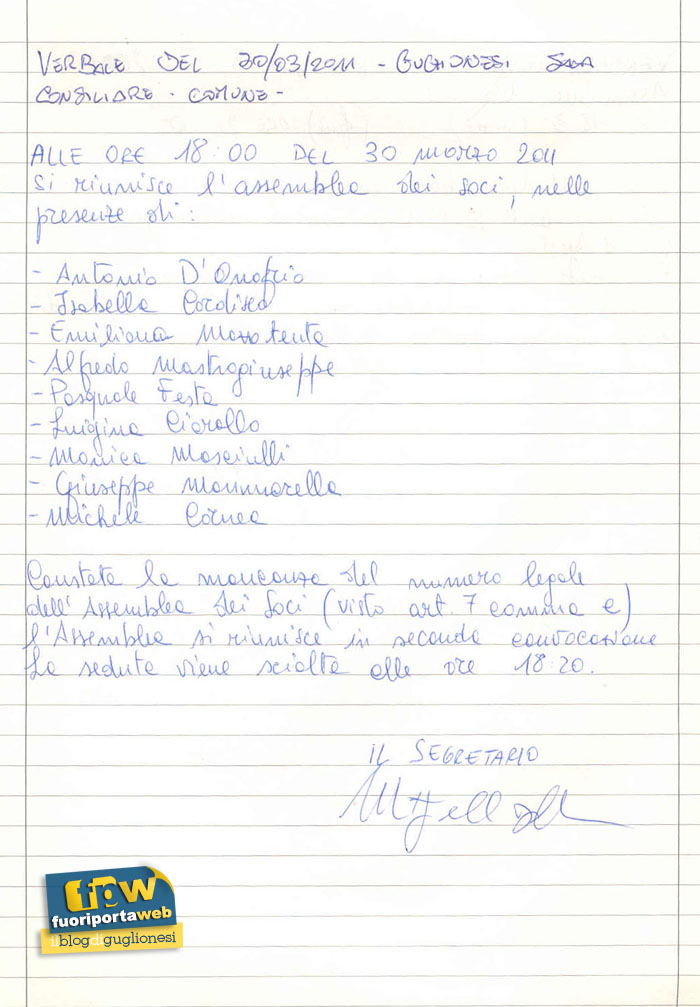 VERBALE DEL 30/03/2011 - GUGLIONESI SALA
CONSILIARE - COMUNE -
ALLE ORE 18:00 DEL 30 MARZO 2011
si riunisce l'assemblea dei soci, nelle
presenze di:
- Antonio D'Onofrio
- Isabella Cordisco
- Emiliana Mazzotenta
- Alfredo Mastrogiuseppe
- Pasquale Festa
- Luigina Ciarallo
- Monica Mosciulli
- Giuseppe Mammarella
- Michele Cornea
Constata la mancanza del numero legale
dell'Assemblea dei Soci (visto art. 7 comma e)
l'Assemblea si riunisce in seconda convocazione
La seduta viene sciolta alle ore 18:20.
IL SEGRETARIO
fpw
fuoriportaweb
il blog di guglionesi